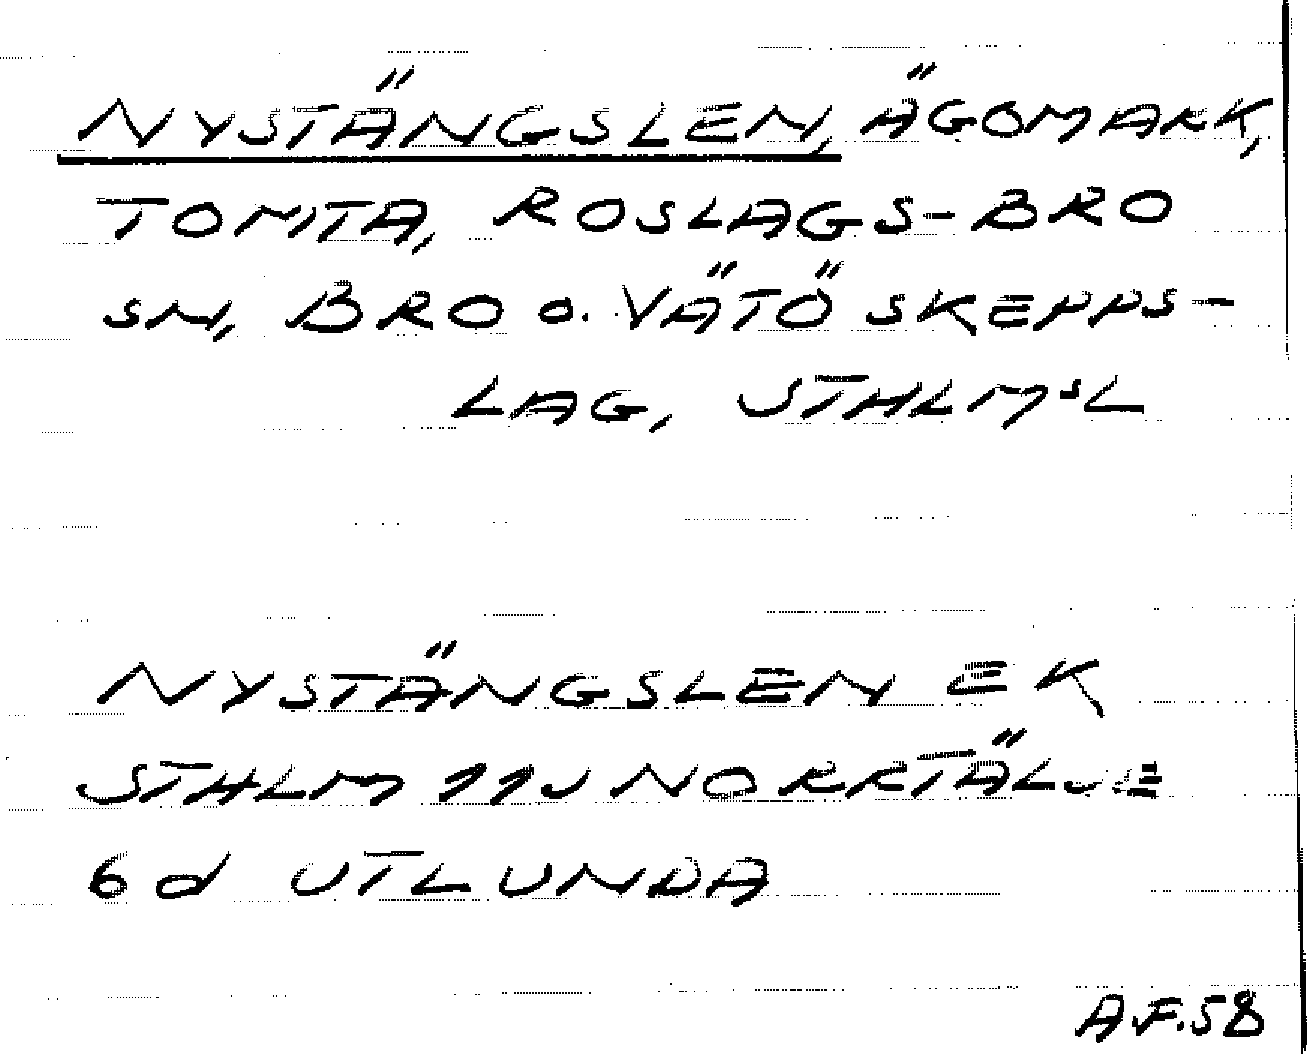 NYSTÄNGSLEN, ÄGOMARK,
TOMTA, ROSLAGS-BRO
SN, BRO O. VÄTÖ SKEPPS-
LAG, STHLMSL
NYSTÄNGSLEN EK
STHLM 11J NORRTÄLJE
6d UTLUNDA
A.F.58